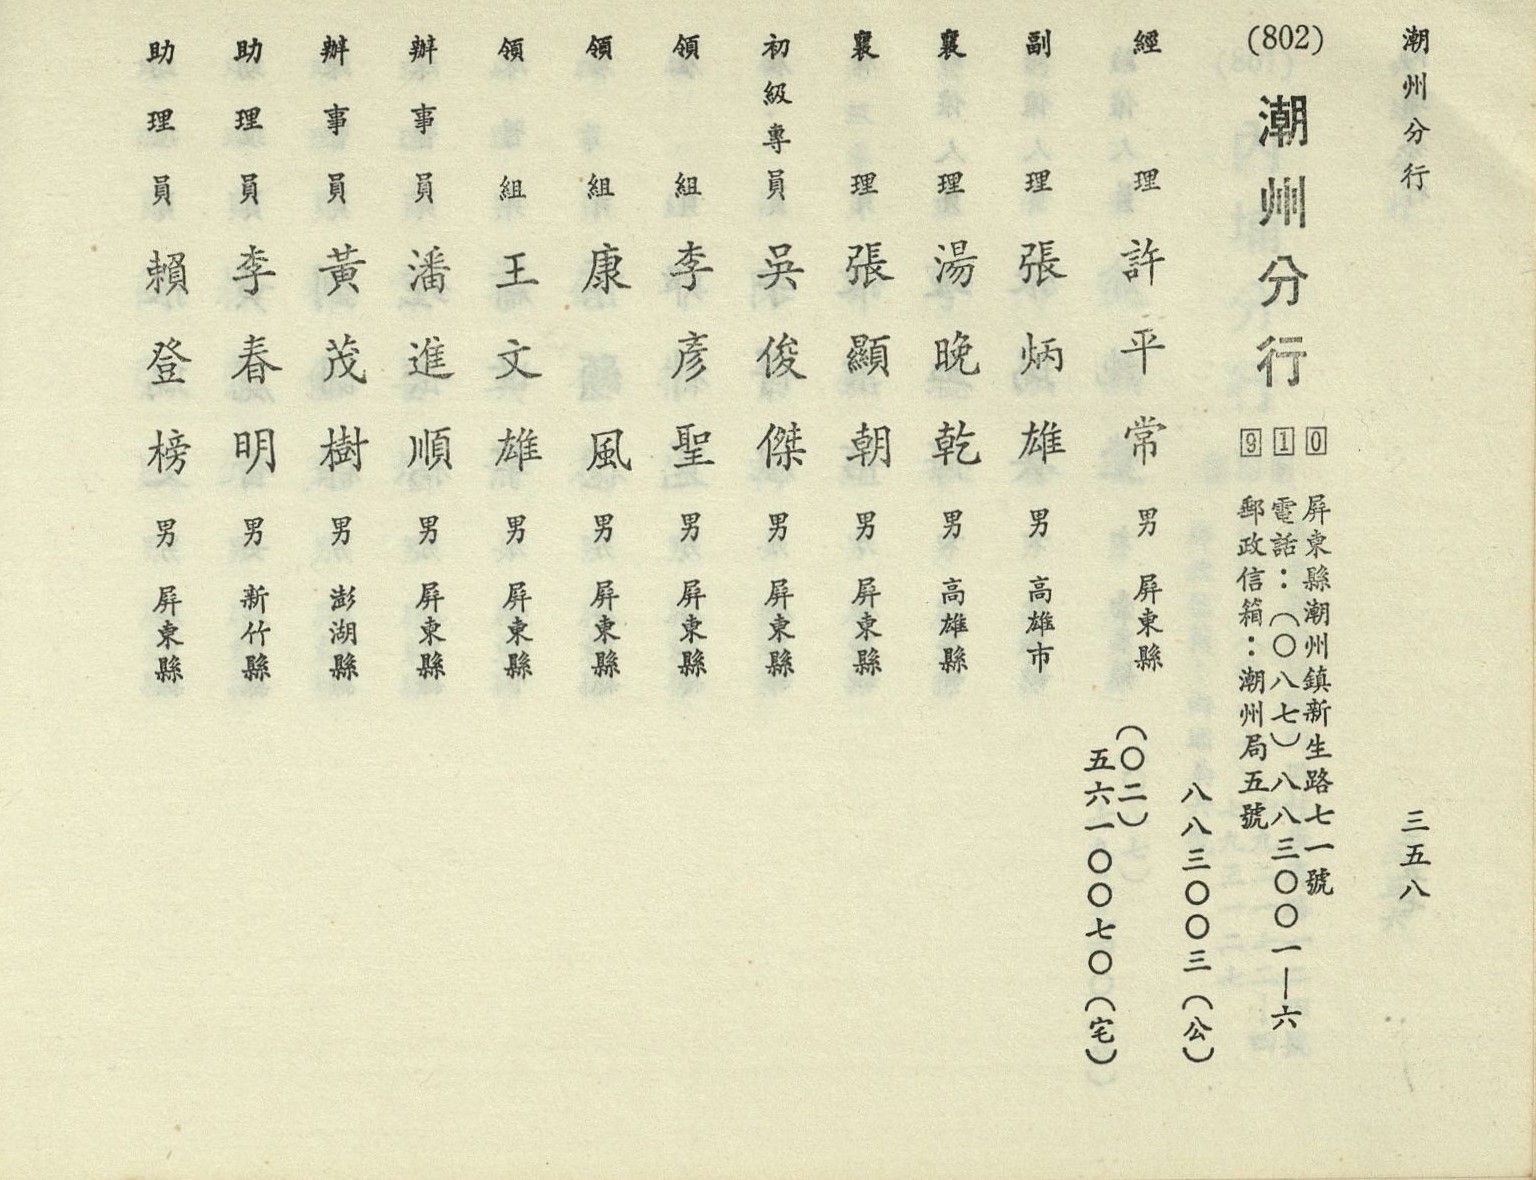 潮州分行 三五八
(802) 潮州分行
0 屏東縣潮州鎮新生路七一號
10 電話：（〇八七）八八三〇〇一—六
9 郵政信箱：潮州局五號
經理 許平常 男 屏東縣
八八三〇〇三（公）
（〇二）
五六一〇〇七〇（宅）
副理 張炳雄 男 高雄市
襄理 湯晚乾 男 高雄縣
襄理 張顯朝 男 屏東縣
初級專員 吳俊傑 男 屏東縣
領組 李彥聖 男 屏東縣
領組 康風 男 屏東縣
領組 王文雄 男 屏東縣
辦事員 潘進順 男 屏東縣
辦事員 黃茂樹 男 澎湖縣
助理員 李春明 男 新竹縣
助理員 賴登榜 男 屏東縣